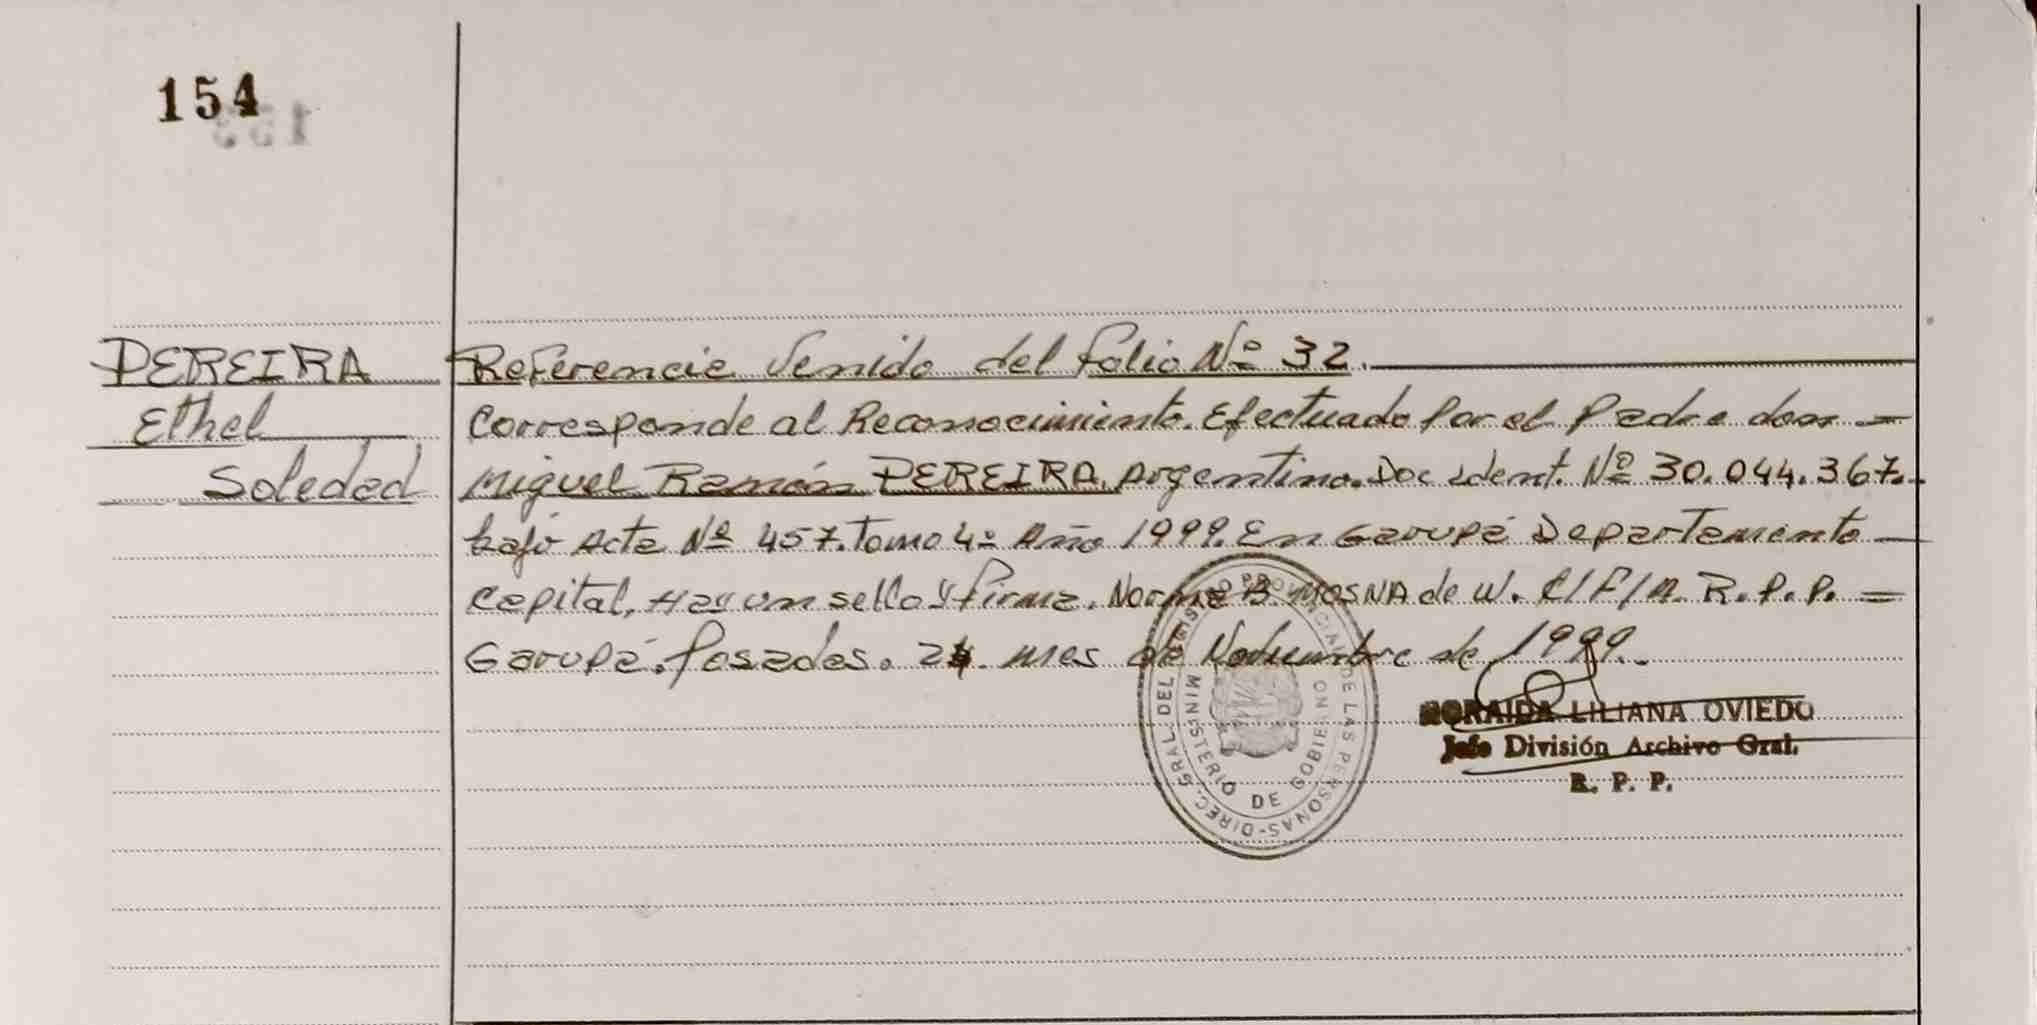 154
PEREIRA
Ethel
Soledad
Referencia Venida del folio Nº 32.
Corresponde al Reconocimiento. Efectuado Por el Padre don =
Miguel Ramón PEREIRA. Argentino. Doc ident. Nº 30.044.367.-
bajo Acta Nº 457. Tomo 4º Año 1999. En Garupá Departamento —
Capital, Hay un sello y firma. Norma B. MOSNA de W. C/F/A. R.P.P. =
Garupá. Posadas. 24. mes de Noviembre de 1999.-
DIREC. GRAL. DEL REGISTRO PROVINCIAL DE LAS PERSONAS-
MINISTERIO DE GOBIERNO
ZORAIDA LILIANA OVIEDO
Jefe División Archivo Gral.
R. P. P.